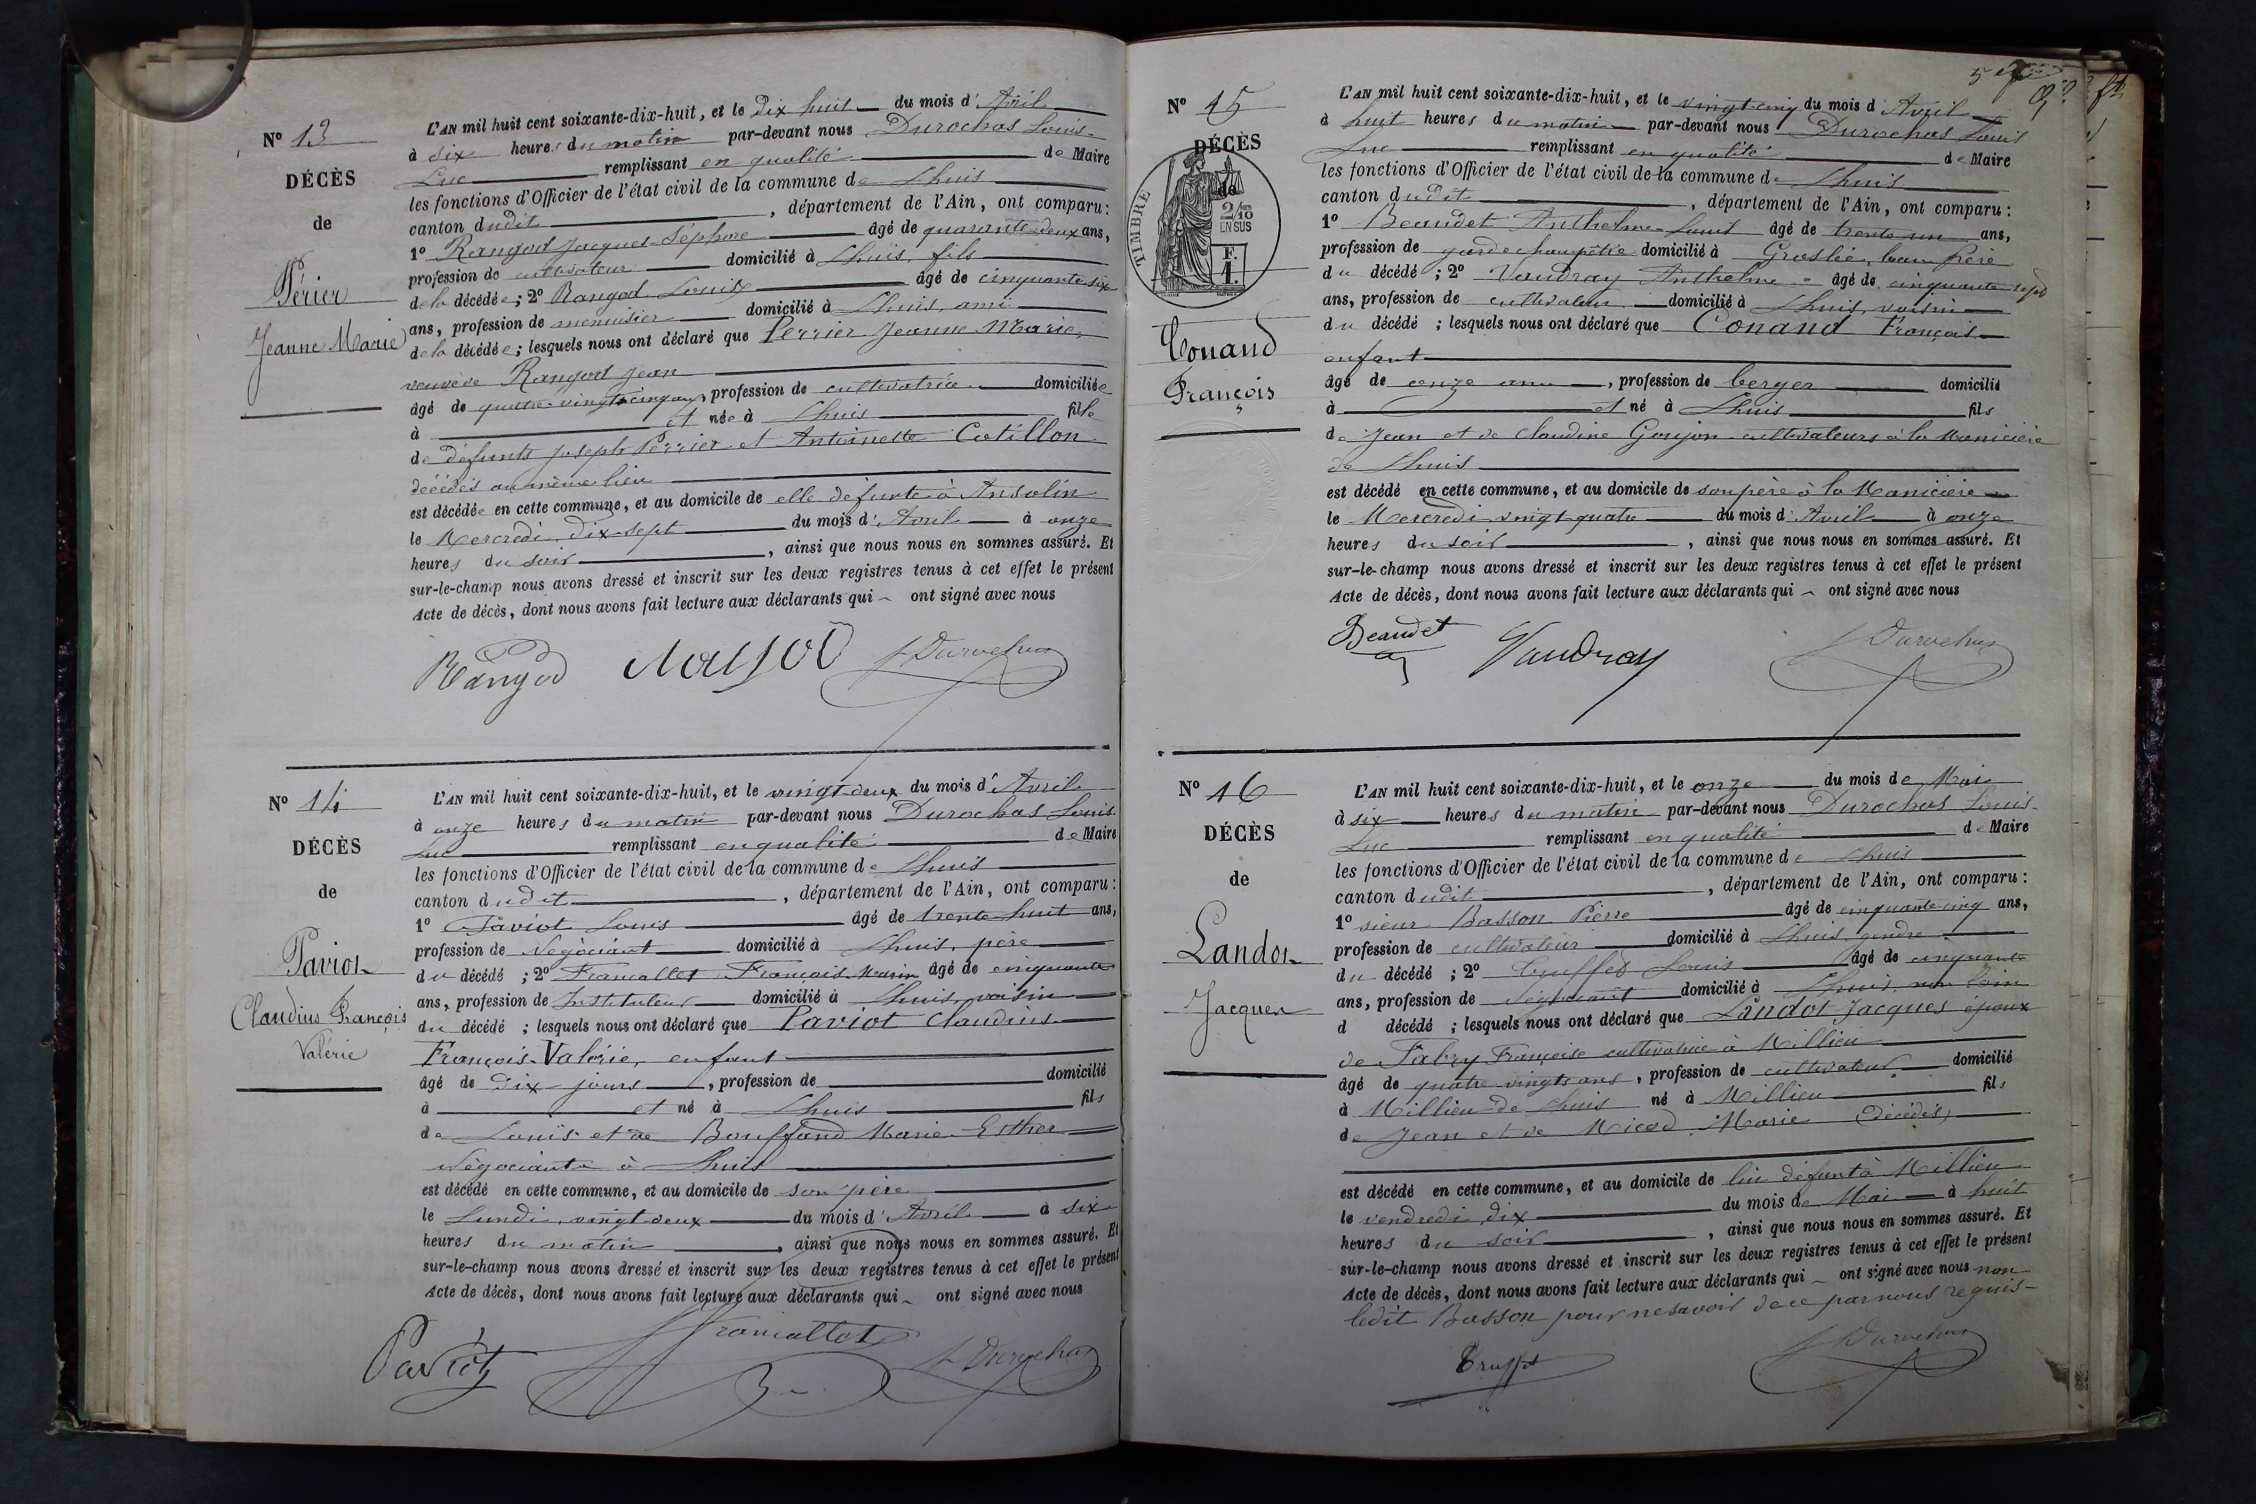 N° 13
DÉCÈS
de
Périer
Jeanne Marie
L'AN mil huit cent soixante-dix-huit, et le dix huit du mois d'Avril
à six heures du matin par-devant nous Durochas Louis
Luc remplissant en qualité de Maire
les fonctions d'Officier de l'état civil de la commune de Lhuis
canton dudit , département de l'Ain, ont comparu:
1° Rangod Jacques Séphore âgé de quarante deux ans,
profession de cultivateur domicilié à Lhuis, fils
de la décédée; 2° Rangod Louis âgé de cinquante six
ans, profession de menuisier domicilié à Lhuis, ami
de la décédée; lesquels nous ont déclaré que Perrier Jeanne Marie,
veuve de Rangod Jean
âgé de quatre vingt cinq ans, profession de cultivatrice domiciliée
à et née à Lhuis fille
de défunts Joseph Perrier et Antoinette Catillon
décédés au même lieu
est décédée en cette commune, et au domicile de elle défunte à Ansolin
le Mercredi dix sept du mois d'Avril à onze
heures du soir , ainsi que nous nous en sommes assuré. Et
sur-le-champ nous avons dressé et inscrit sur les deux registres tenus à cet effet le présent
Acte de décès, dont nous avons fait lecture aux déclarants qui ont signé avec nous
Rangod Rangod L Durochas
N° 14
DÉCÈS
de
Paviot
Claudius François
Valérie
L'AN mil huit cent soixante-dix-huit, et le vingt deux du mois d'Avril
à onze heures du matin par-devant nous Durochas Louis
Luc remplissant en qualité de Maire
les fonctions d'Officier de l'état civil de la commune de Lhuis
canton dudit , département de l'Ain, ont comparu:
1° Paviot Louis âgé de trente huit ans,
profession de Négociant domicilié à Lhuis, père
du décédé ; 2° Framallet François Marin âgé de cinquante
ans, profession de Instituteur domicilié à Lhuis, voisin
du décédé ; lesquels nous ont déclaré que Paviot Claudius
François Valérie, enfant
âgé de dix jours , profession de domicilié
à et né à Lhuis fils
de Louis et de Bouffand Marie Esther
Négociants à Lhuis
est décédé en cette commune, et au domicile de son père
le Lundi vingt deux du mois d'Avril à six
heures du matin , ainsi que nous nous en sommes assuré. Et
sur-le-champ nous avons dressé et inscrit sur les deux registres tenus à cet effet le présent
Acte de décès, dont nous avons fait lecture aux déclarants qui ont signé avec nous
Paviot Framallet L Durochas
N° 15
DÉCÈS
de
TIMBRE
2/10
EN SUS
F.
1.
Conand
François
L'AN mil huit cent soixante-dix-huit, et le vingt cinq du mois d'Avril
à huit heures du matin par-devant nous Durochas Louis
Luc remplissant en qualité de Maire
les fonctions d'Officier de l'état civil de la commune de Lhuis
canton dudit , département de l'Ain, ont comparu:
1° Beaudet Anthelme Louis âgé de trente un ans,
profession de garde champêtre domicilié à Groslée, beau frère
du décédé ; 2° Vaudray Anthelme âgé de cinquante sept
ans, profession de cultivateur domicilié à Lhuis, voisin
du décédé ; lesquels nous ont déclaré que Conand François
enfant
âgé de onze ans , profession de berger domicilié
à et né à Lhuis fils
de Jean et de Claudine Goujon cultivateurs à la Manicière
de Lhuis
est décédé en cette commune, et au domicile de son père à la Manicière
le Mercredi vingt quatre du mois d'Avril à onze
heures du soir , ainsi que nous nous en sommes assuré. Et
sur-le-champ nous avons dressé et inscrit sur les deux registres tenus à cet effet le présent
Acte de décès, dont nous avons fait lecture aux déclarants qui ont signé avec nous
Beaudet Vaudray L Durochas
N° 16
DÉCÈS
de
Landot
Jacques
L'AN mil huit cent soixante-dix-huit, et le onze du mois de Mai
à six heures du matin par-devant nous Durochas Louis
Luc remplissant en qualité de Maire
les fonctions d'Officier de l'état civil de la commune de Lhuis
canton dudit , département de l'Ain, ont comparu:
1° sieur Basson Pierre âgé de cinquante cinq ans,
profession de cultivateur domicilié à Lhuis, gendre
du décédé ; 2° Truffet Louis âgé de cinquante
ans, profession de Négociant domicilié à Lhuis, voisin
d décédé ; lesquels nous ont déclaré que Landot Jacques époux
de Fabry Françoise cultivatrice à Millieu
âgé de quatre vingts ans, profession de cultivateur domicilié
à Millieu de Lhuis né à Millieu fils
de Jean et de Micod Marie (décédés)
est décédé en cette commune, et au domicile de lui défunt à Millieu
le vendredi dix du mois de Mai à huit
heures du soir , ainsi que nous nous en sommes assuré. Et
sur-le-champ nous avons dressé et inscrit sur les deux registres tenus à cet effet le présent
Acte de décès, dont nous avons fait lecture aux déclarants qui ont signé avec nous non
ledit Basson pour ne savoir de ce par nous requis
Truffet L Durochas